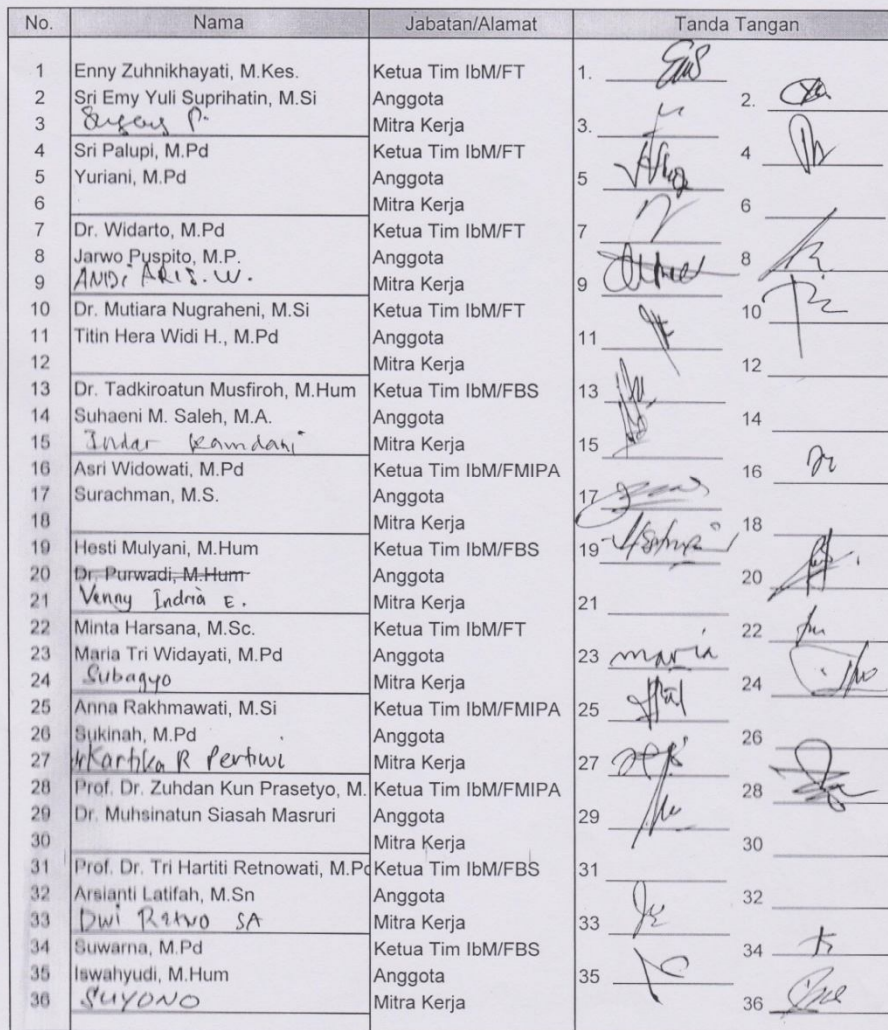 No. Nama Jabatan/Alamat Tanda Tangan
1 Enny Zuhnikhayati, M.Kes. Ketua Tim IbM/FT 1.
2 Sri Emy Yuli Suprihatin, M.Si Anggota 2.
3 Sugeng P. Mitra Kerja 3.
4 Sri Palupi, M.Pd Ketua Tim IbM/FT 4
5 Yuriani, M.Pd Anggota 5
6 Mitra Kerja 6
7 Dr. Widarto, M.Pd Ketua Tim IbM/FT 7
8 Jarwo Puspito, M.P. Anggota 8
9 ANDI ARIS. W. Mitra Kerja 9
10 Dr. Mutiara Nugraheni, M.Si Ketua Tim IbM/FT 10
11 Titin Hera Widi H., M.Pd Anggota 11
12 Mitra Kerja 12
13 Dr. Tadkiroatun Musfiroh, M.Hum Ketua Tim IbM/FBS 13
14 Suhaeni M. Saleh, M.A. Anggota 14
15 Indar Ramdani Mitra Kerja 15
16 Asri Widowati, M.Pd Ketua Tim IbM/FMIPA 16
17 Surachman, M.S. Anggota 17
18 Mitra Kerja 18
19 Hesti Mulyani, M.Hum Ketua Tim IbM/FBS 19
20 Dr. Purwadi, M.Hum Anggota 20
21 Venny Indria E. Mitra Kerja 21
22 Minta Harsana, M.Sc. Ketua Tim IbM/FT 22
23 Maria Tri Widayati, M.Pd Anggota 23 maria
24 Subagyo Mitra Kerja 24
25 Anna Rakhmawati, M.Si Ketua Tim IbM/FMIPA 25
26 Sukinah, M.Pd Anggota 26
27 dr Kartika R Pertiwi Mitra Kerja 27
28 Prof. Dr. Zuhdan Kun Prasetyo, M. Ketua Tim IbM/FMIPA 28
29 Dr. Muhsinatun Siasah Masruri Anggota 29
30 Mitra Kerja 30
31 Prof. Dr. Tri Hartiti Retnowati, M.Pd Ketua Tim IbM/FBS 31
32 Arsianti Latifah, M.Sn Anggota 32
33 Dwi Retno SA Mitra Kerja 33
34 Suwarna, M.Pd Ketua Tim IbM/FBS 34
35 Iswahyudi, M.Hum Anggota 35
36 SUYONO Mitra Kerja 36